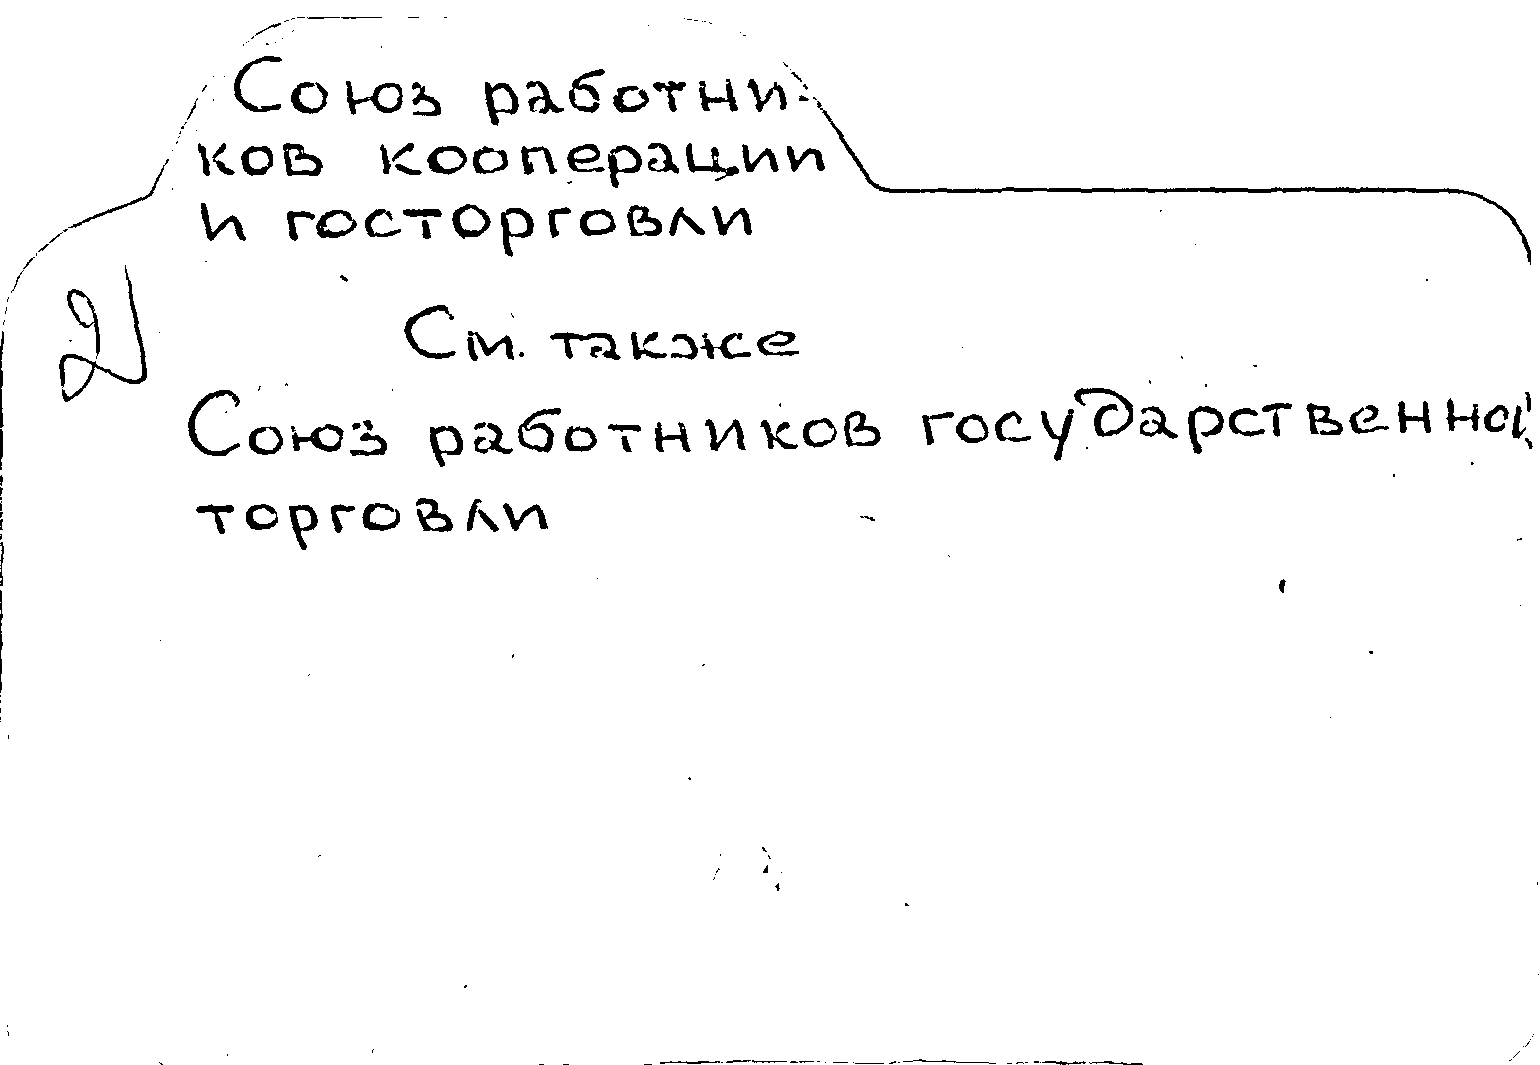 Союз работни-
ков кооперации
и госторговли
См. также
Союз работников государственной
торговли